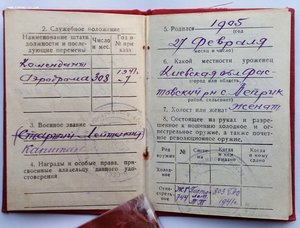 2. Служебное положение
Наименование штатной
должности и последующие перемены
Число и мес.
Год и № приказа
Комендант
Аэродрома
308
1941
3. Военное звание
Старший Лейтенант
Капитан
4. Награды и особые права, присвоенные владельцу данного
удостоверения.
5. Родился
1905
(год
27 Февраля
(месяц и число)
6. Какой местности уроженец
Киевская обл Фас-
товский р-н с.
7. Холост или женат
женат
8. Состоящее на руках и разрешенное
к ношению холодное и огнестрельное
оружие, а также почетное
революционное оружие.
Род оружия
№
Кем и когда выдано
Кому сдано
Холодное
Огнестрельное
1941г.